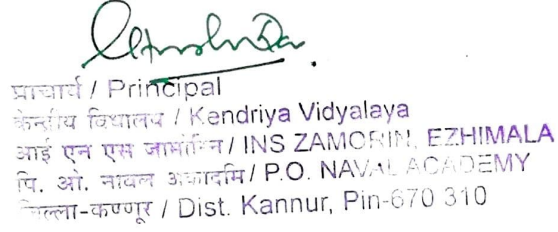 प्राचार्य / Principal
केन्द्रीय विद्यालय / Kendriya Vidyalaya
आई एन एस जामोरिन / INS ZAMORIN, EZHIMALA
पि. ओ. नावल अकादमि / P.O. NAVAL ACADEMY
जिल्ला-कण्णूर / Dist. Kannur, Pin-670 310